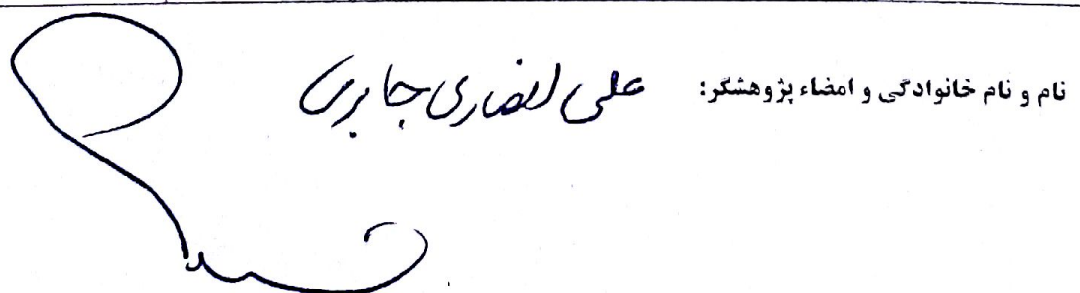 نام و نام خانوادگی و امضاء پژوهشگر: علی انصاری جابری